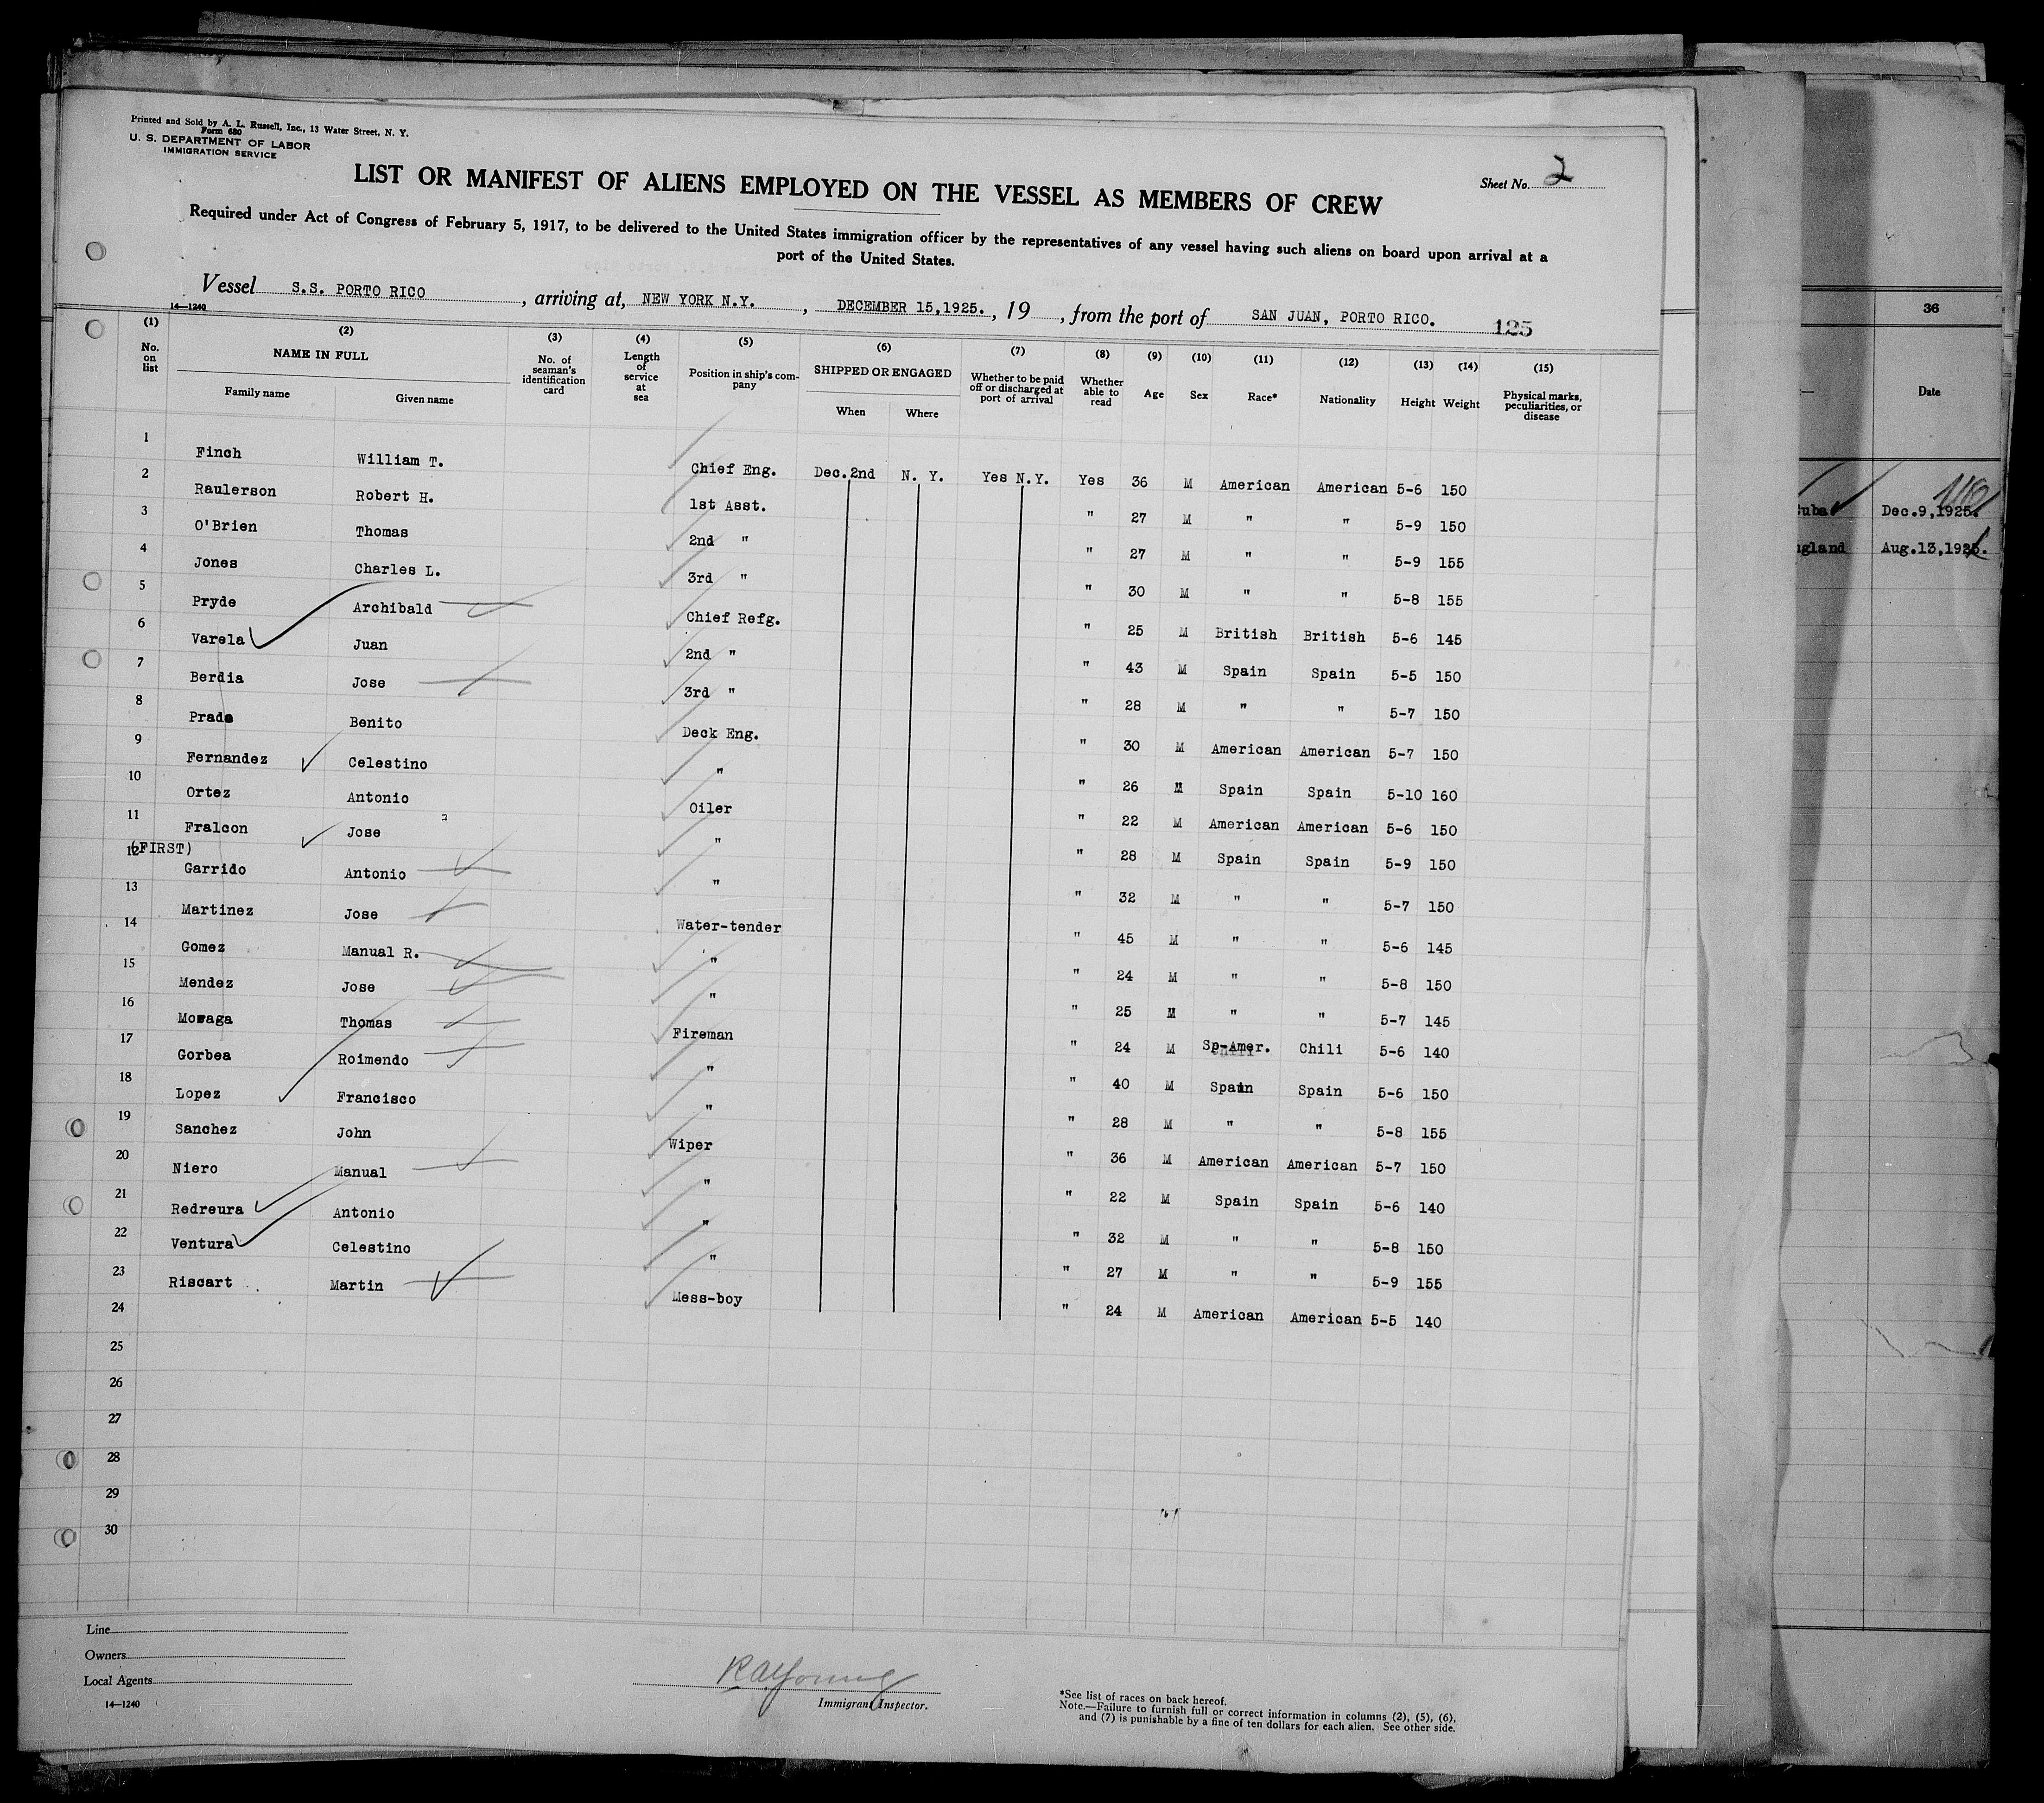 Printed and Sold by A. L. Russell, Inc., 13 Water Street, N. Y.
Form 680
U. S. DEPARTMENT OF LABOR
IMMIGRATION SERVICE
Sheet No. 2
LIST OR MANIFEST OF ALIENS EMPLOYED ON THE VESSEL AS MEMBERS OF CREW
Required under Act of Congress of February 5, 1917, to be delivered to the United States immigration officer by the representatives of any vessel having such aliens on board upon arrival at a
port of the United States.
Vessel S.S. PORTO RICO, arriving at, NEW YORK N.Y., DECEMBER 15,1925., 19 , from the port of SAN JUAN, PORTO RICO. 125
14—1240
(1) (2) (3) (4) (5) (6) (7) (8) (9) (10) (11) (12) (13) (14) (15)
No. on list NAME IN FULL Family name Given name No. of seaman's identification card Length of service at sea Position in ship's company SHIPPED OR ENGAGED When Where Whether to be paid off or discharged at port of arrival Whether able to read Age Sex Race* Nationality Height Weight Physical marks, peculiarities, or disease
1 Finch William T. Chief Eng. Dec.2nd N. Y. Yes N.Y. Yes 36 M American American 5-6 150
2 Raulerson Robert H. 1st Asst. " 27 M " " 5-9 150
3 O'Brien Thomas 2nd " " 27 M " " 5-9 155
4 Jones Charles L. 3rd " " 30 M " " 5-8 155
5 Pryde Archibald Chief Refg. " 25 M British British 5-6 145
6 Varela Juan 2nd " " 43 M Spain Spain 5-5 150
7 Berdia Jose 3rd " " 28 M " " 5-7 150
8 Prado Benito Deck Eng. " 30 M American American 5-7 150
9 Fernandez Celestino " " 26 M Spain Spain 5-10 160
10 Ortez Antonio Oiler " 22 M American American 5-6 150
11 Fralcon Jose " " 28 M Spain Spain 5-9 150
12 (FIRST)
Garrido Antonio " " 32 M " " 5-7 150
13 Martinez Jose Water-tender " 45 M " " 5-6 145
14 Gomez Manual R. " " 24 M " " 5-8 150
15 Mendez Jose " " 25 M " " 5-7 145
16 Moraga Thomas Fireman " 24 M Sp-Amer. Chili 5-6 140
17 Gorbea Roimendo " " 40 M Spain Spain 5-6 150
18 Lopez Francisco " " 28 M " " 5-8 155
19 Sanchez John Wiper " 36 M American American 5-7 150
20 Niero Manual " " 22 M Spain Spain 5-6 140
21 Redreura Antonio " " 32 M " " 5-8 150
22 Ventura Celestino " " 27 M " " 5-9 155
23 Riscart Martin Mess-boy " 24 M American American 5-5 140
24
25
26
27
28
29
30
Line
Owners
Local Agents
14—1240
R A Young
Immigrant Inspector.
*See list of races on back hereof.
Note.—Failure to furnish full or correct information in columns (2), (5), (6),
and (7) is punishable by a fine of ten dollars for each alien. See other side.
36
Date
Cuba Dec.9,1925.
England Aug.13,1925.